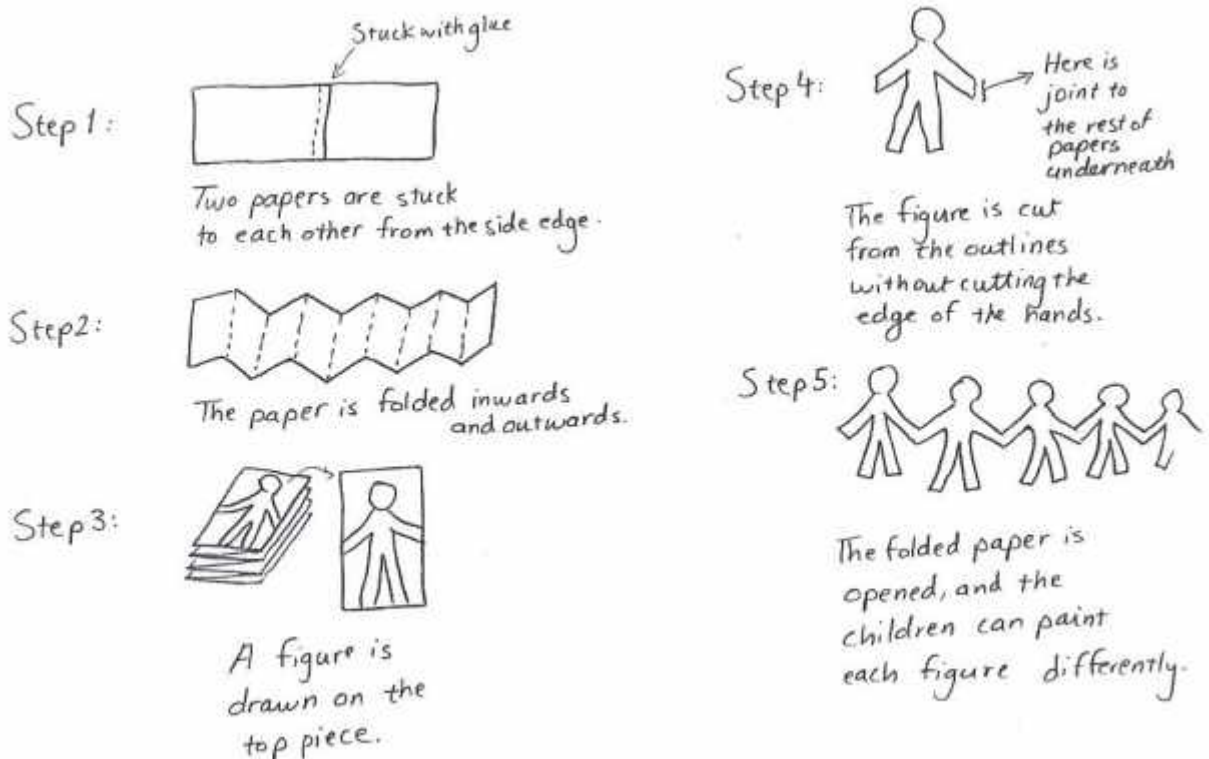 Step 1:
Stuck with glue
Two papers are stuck
to each other from the side edge.
Step2:
The paper is folded inwards
and outwards.
Step3:
A figure is
drawn on the
top piece.
Step 4:
Here is
joint to
the rest of
papers
underneath
The figure is cut
from the outlines
without cutting the
edge of the hands.
Step5:
The folded paper is
opened, and the
children can paint
each figure differently.